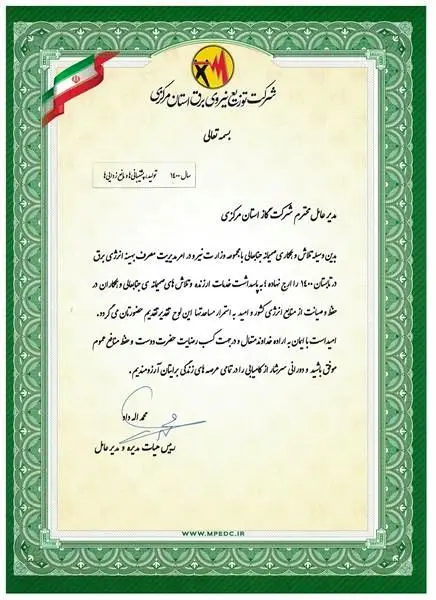 شرکت توزیع نیروی برق استان مرکزی
بسمه تعالی
سال ۱۴۰۰ تولید، پشتیبانی ها و مانع زدایی ها
مدیر عامل محترم شرکت گاز استان مرکزی
بدین وسیله تلاش و همکاری صمیمانه جنابعالی با مجموعه وزارت نیرو در امر مدیریت مصرف بهینه انرژی برق
در تابستان ۱۴۰۰ را ارج نهاده ؛ به پاسداشت خدمات ارزنده و تلاش های صمیمانه ی جنابعالی و همکاران در
حفظ و صیانت از منابع انرژی کشور و امید به استمرار مساعدتها این لوح تقدیر تقدیم حضورتان می گردد.
امید است با ایمان به اراده خداوند متعال و در جهت کسب رضایت حضرت دوست و حفظ منافع عموم
موفق باشید و دورانی سرشار از کامیابی را در تمامی عرصه های زندگی برایتان آرزومندیم.
محمد اله داد
رییس هیات مدیره و مدیر عامل
WWW.MPEDC.IR